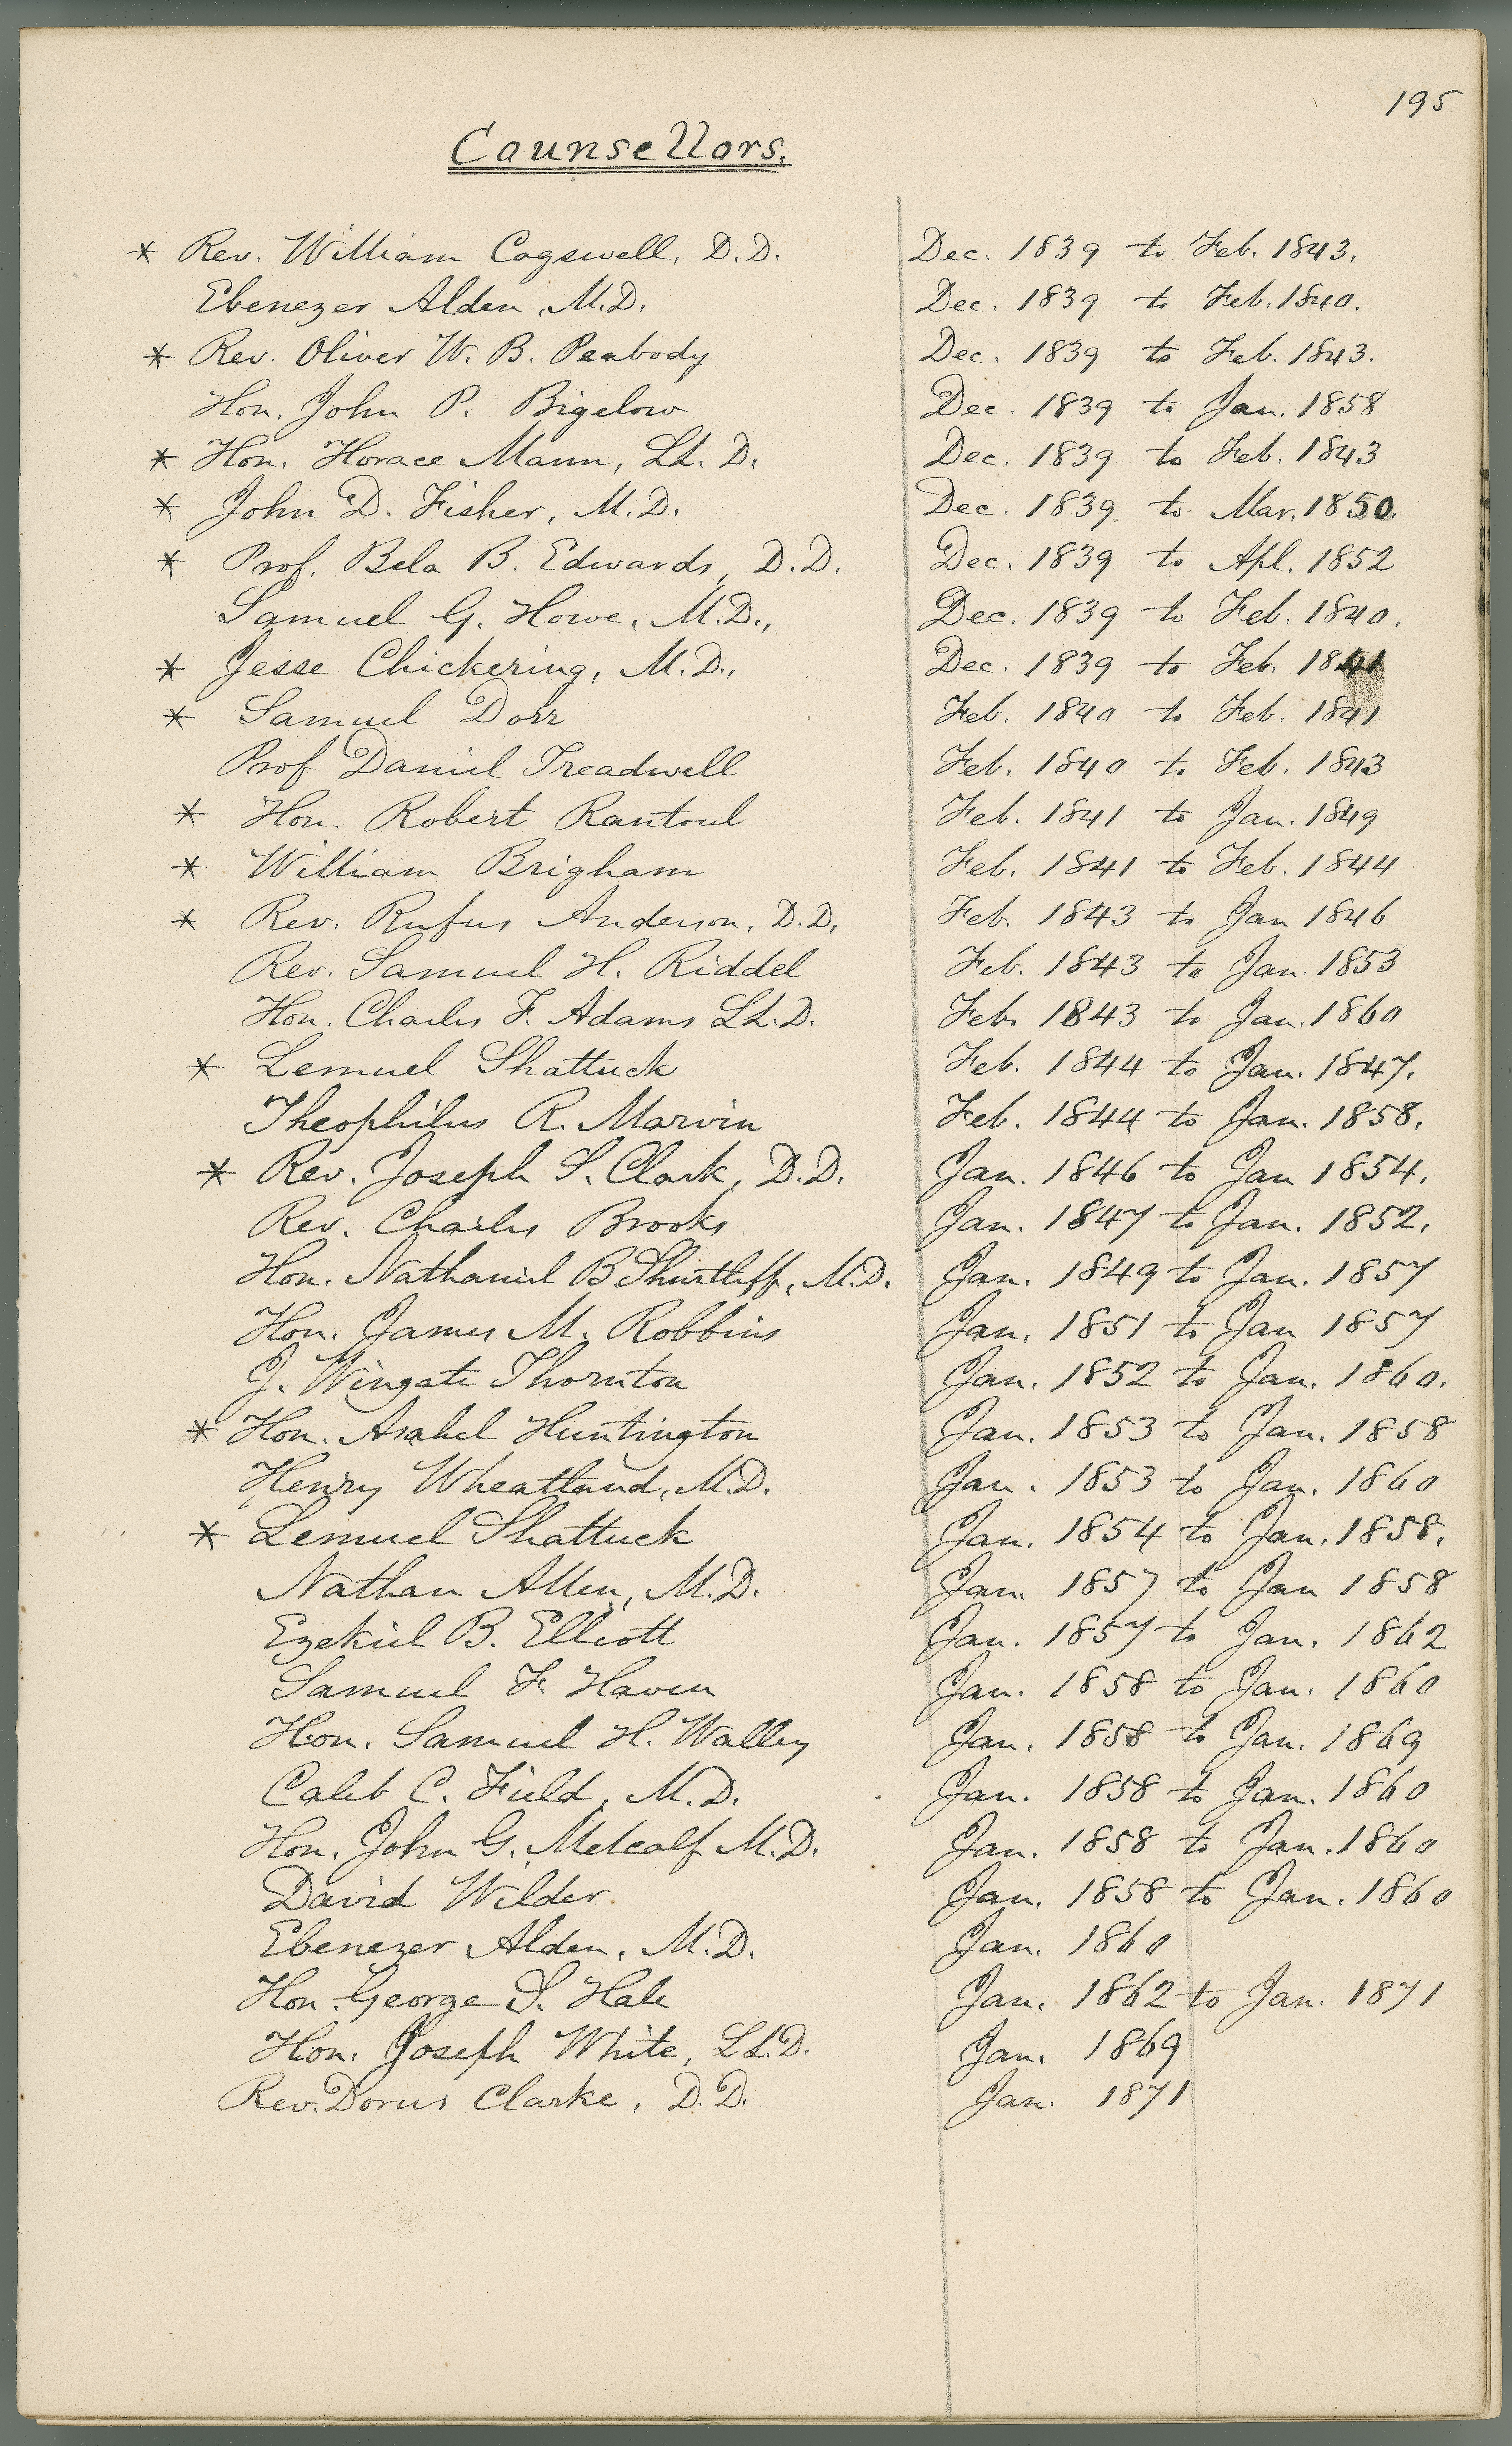 195
Counsellors.
* Rev. William Cogswell, D.D. Dec. 1839 to Feb. 1843.
Ebenezer Alden, M.D. Dec. 1839 to Feb. 1840.
* Rev. Oliver W. B. Peabody Dec. 1839 to Feb. 1843.
Hon. John P. Bigelow Dec. 1839 to Jan. 1858
* Hon. Horace Mann, LL. D. Dec. 1839 to Feb. 1843
* John D. Fisher, M.D. Dec. 1839 to Mar. 1850.
* Prof. Bela B. Edwards, D.D. Dec. 1839 to Apl. 1852
Samuel G. Howe, M.D., Dec. 1839 to Feb. 1840.
* Jesse Chickering, M.D., Dec. 1839 to Feb. 1841
* Samuel Dorr Feb. 1840 to Feb. 1841
Prof Daniel Treadwell Feb. 1840 to Feb. 1843
* Hon. Robert Rantoul Feb. 1841 to Jan. 1849
* William Brigham Feb. 1841 to Feb. 1844
* Rev. Rufus Anderson, D.D. Feb. 1843 to Jan 1846
Rev. Samuel H. Riddel Feb. 1843 to Jan. 1853
Hon. Charles F. Adams LL.D. Feb. 1843 to Jan. 1860
* Lemuel Shattuck Feb. 1844 to Jan. 1847.
Theophilus R. Marvin Feb. 1844 to Jan. 1858.
* Rev. Joseph S. Clark, D.D. Jan. 1846 to Jan 1854.
Rev. Charles Brooks Jan. 1847 to Jan. 1852.
Hon. Nathaniel B Shurtleff, M.D. Jan. 1849 to Jan. 1857
Hon. James M. Robbins Jan. 1851 to Jan 1857
J. Wingate Thornton Jan. 1852 to Jan. 1860.
* Hon. Asahel Huntington Jan. 1853 to Jan. 1858
Henry Wheatland, M.D. Jan. 1853 to Jan. 1860
* Lemuel Shattuck Jan. 1854 to Jan. 1858.
Nathan Allen, M.D. Jan. 1857 to Jan 1858
Ezekiel B. Elliott Jan. 1857 to Jan. 1862
Samuel F. Haven Jan. 1858 to Jan. 1860
Hon. Samuel H. Walley Jan. 1858 to Jan. 1869
Caleb C. Field, M.D. Jan. 1858 to Jan. 1860
Hon. John G. Metcalf M.D. Jan. 1858 to Jan. 1860
David Wilder Jan. 1858 to Jan. 1860
Ebenezer Alden, M.D. Jan. 1860
Hon. George S. Hale Jan. 1862 to Jan. 1871
Hon. Joseph White, LL.D. Jan. 1869
Rev. Dorus Clarke, D.D. Jan. 1871